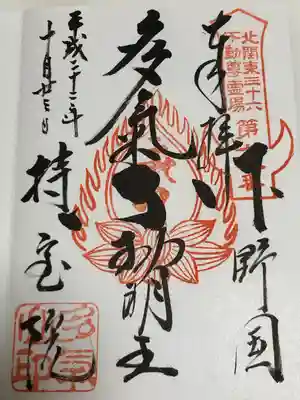 北関東三十六
不動尊霊場
奉拝
下野国
多氣不動明王
平成二十二年
十月廿三日
持宝院